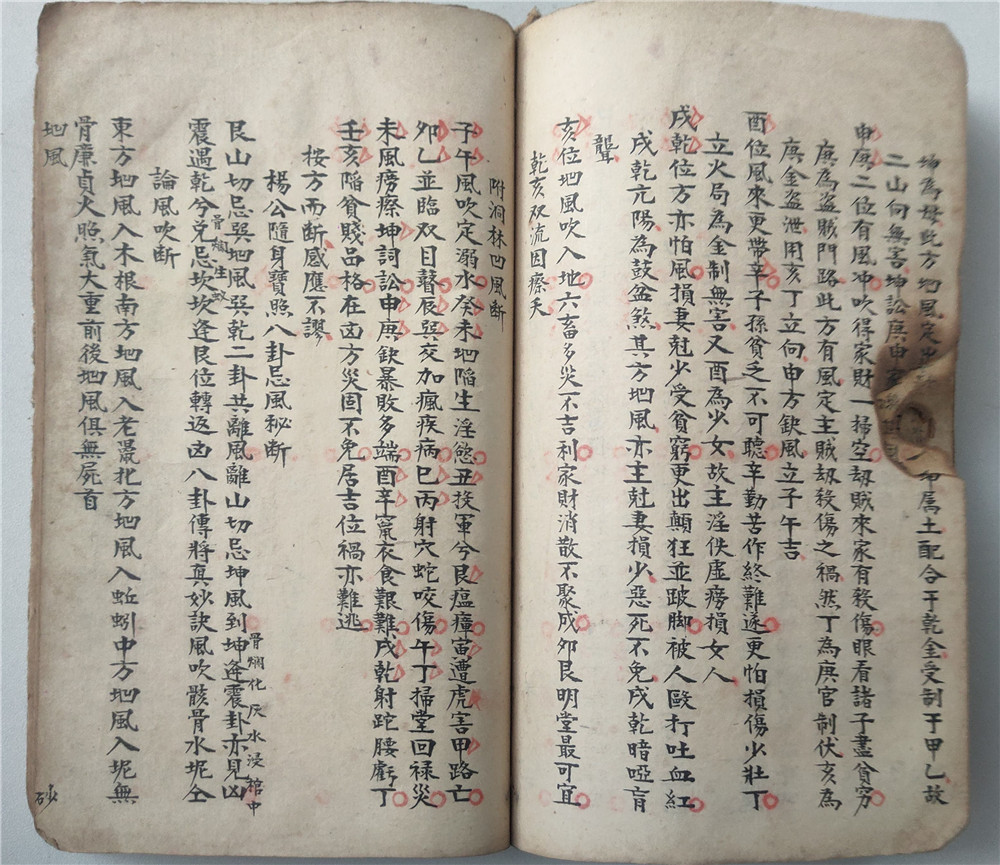 坤為母此方地風定出
坤屬土配合于乾金受制于甲乙故
二山向無害坤訟庚申
申庚二位有風冲吹得家財一掃空刼賊來家有殺傷眼看諸子盡貧穷
庚為盗賊門路此方有風定主賊刼殺傷之禍然丁為庚官制伏亥為
庚金盗泄用亥丁立向申方鈌風立子午吉
酉位風來更帶辛子孫貧乏不可聼辛勤苦作終難遂更怕損傷少壮丁
立火局為金制無害又酉為少女故主淫佚虛癆損女人
戌乾位方亦怕風損妻尅少受貧窮更出顛狂並跛脚被人毆打吐血紅
戌乾亢陽為鼓盆煞其方地風亦主尅妻損少惡死不免戌乾暗啞盲
聾
亥位地風吹入地六畜多災不吉利家財消散不聚成卯艮明堂最可宜
乾亥双流因瘵夭
附洞林凹風断
子午風吹定溺水癸未地陷生淫慾丑投軍兮艮瘟瘴寅遭虎害甲路亡
夘乙並臨双目瞽辰巽交加瘋疾病巳丙射穴蛇咬傷午丁掃堂回禄災
未風癆瘵坤詞訟申庚鈌暴敗多端酉辛窜衣食艱難戌乾射跎腰虧丁
壬亥陷貧賤品格在凶方災固不免居吉位禍亦難逃
按方而断感應不謬
楊公隨身寶照八卦忌風秘断
艮山切忌巽地風巽乾二卦共離風離山切忌坤風到坤逢震卦亦見凶
骨爛化灰水浸棺中
震遇乾兮兑忌坎坎逢艮位轉返凶八卦傳將真妙訣風吹骸骨水坭仝
骨爛生蚁
論風吹断
東方地風入木根南方地風入老鼠北方地風入蚯蚓中方地風入坭無
骨廉貞火照氣大重前後地風俱無屍首
地風